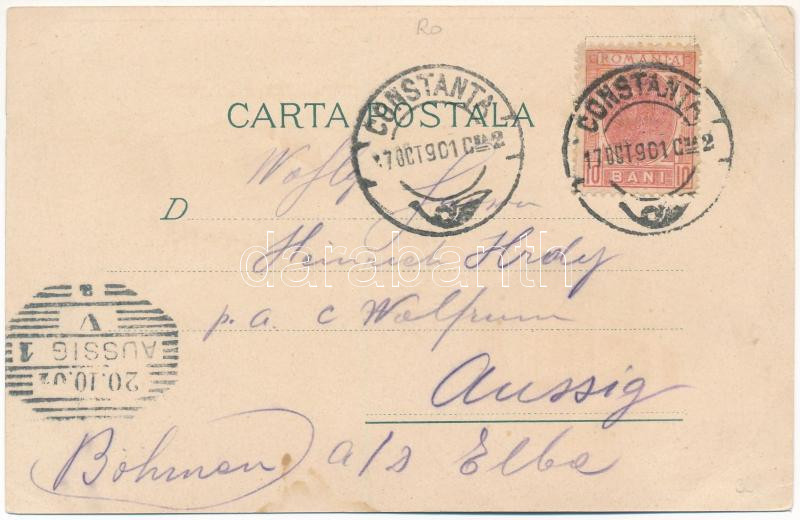 Ro
ROMANIA
10 BANI 10
CONSTANTA
17 OCT 901 Cᵗᵃ 2
CONSTANTA
17 OCT 901 Cᵗᵃ 2
CARTA POSTALA
Wohlg
D
Heinrich Hrdy
p. a. c Wolfrum
Aussig
(Böhmen) a/s Elbe
20.10.01
AUSSIG 1
V
darabanth.com